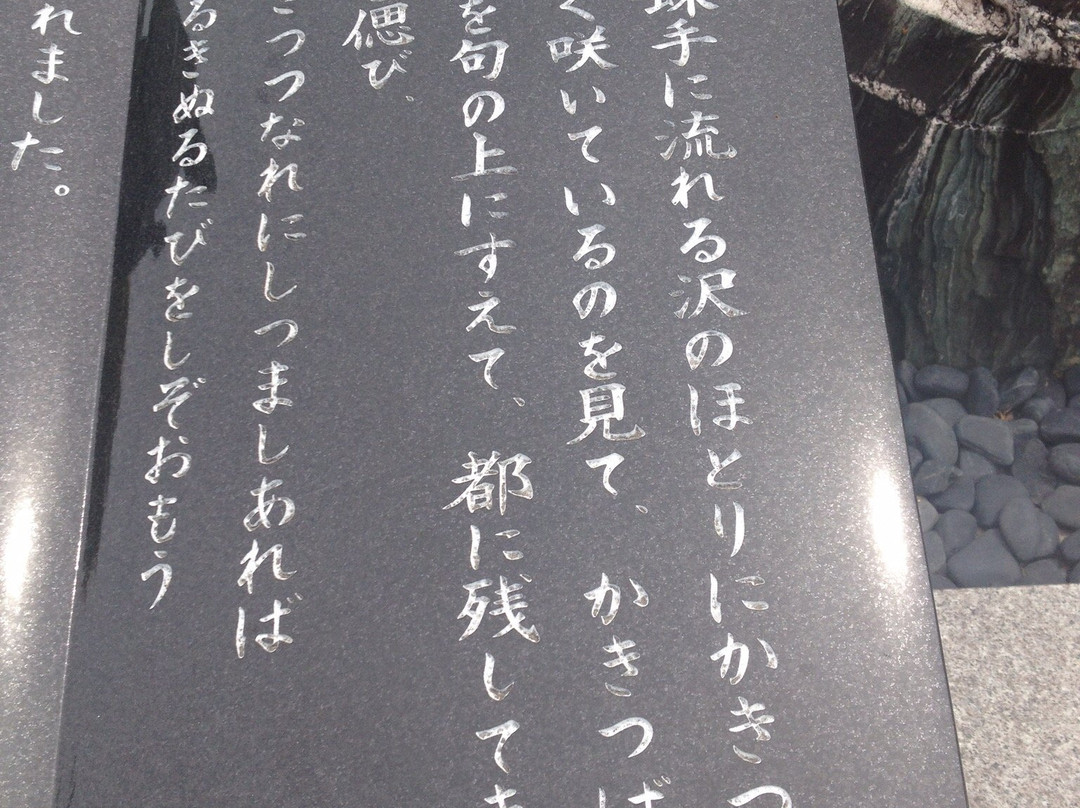 手に流れる沢のほとりにかきつ
く咲いているのを見て、かきつば
を句の上にすえて。都に残してき
偲び、
つつなれにしつましあれば
るきぬるたびをしぞおもう
れました。